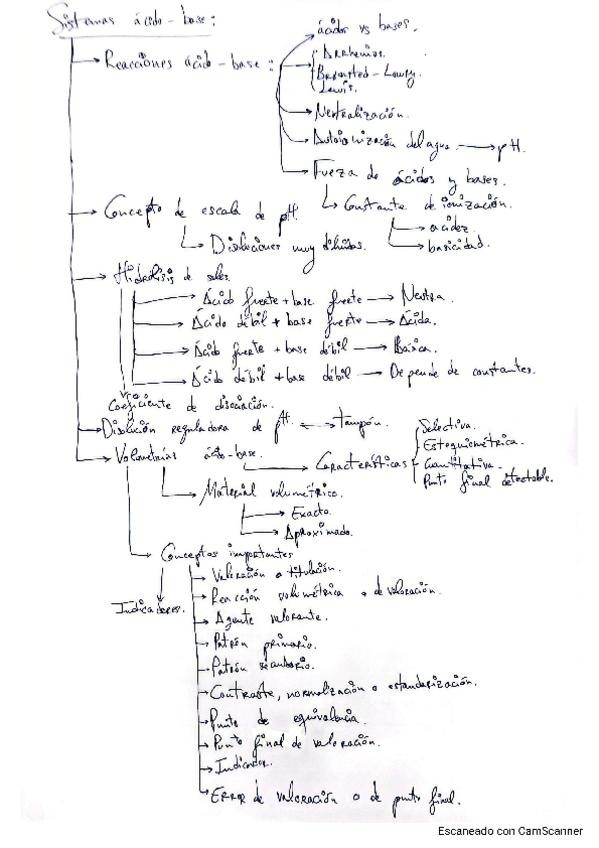 Sistemas ácido-base:
ácidos vs bases.
Reacciones ácido-base:
Arrhenius.
Brønsted-Lowry.
Lewis.
Neutralización.
Autoionización del agua. → pH.
Fuerza de ácidos y bases.
Constante de ionización.
acidez
basicidad.
Concepto de escala de pH.
Disoluciones muy diluidas.
Hidrólisis de sales.
Ácido fuerte + base fuerte → Neutra.
Ácido débil + base fuerte → Ácida.
Ácido fuerte + base débil → Básica.
Ácido débil + base débil → Depende de constantes.
Coeficiente de disociación.
Disolución reguladora de pH. ↔ Tampón.
Volumetrías ácido-base.
Características
Selectiva.
Estequiométrica.
Cuantitativa.
Punto final detectable.
Material volumétrico.
Exacto.
Aproximado.
Conceptos importantes
Indicadores.
Valoración o titulación.
Reacción volumétrica o de valoración.
Agente valorante.
Patrón primario.
Patrón secundario.
Contraste, normalización o estandarización.
Punto de equivalencia.
Punto final de valoración.
Indicador.
Error de valoración o de punto final.
Escaneado con CamScanner